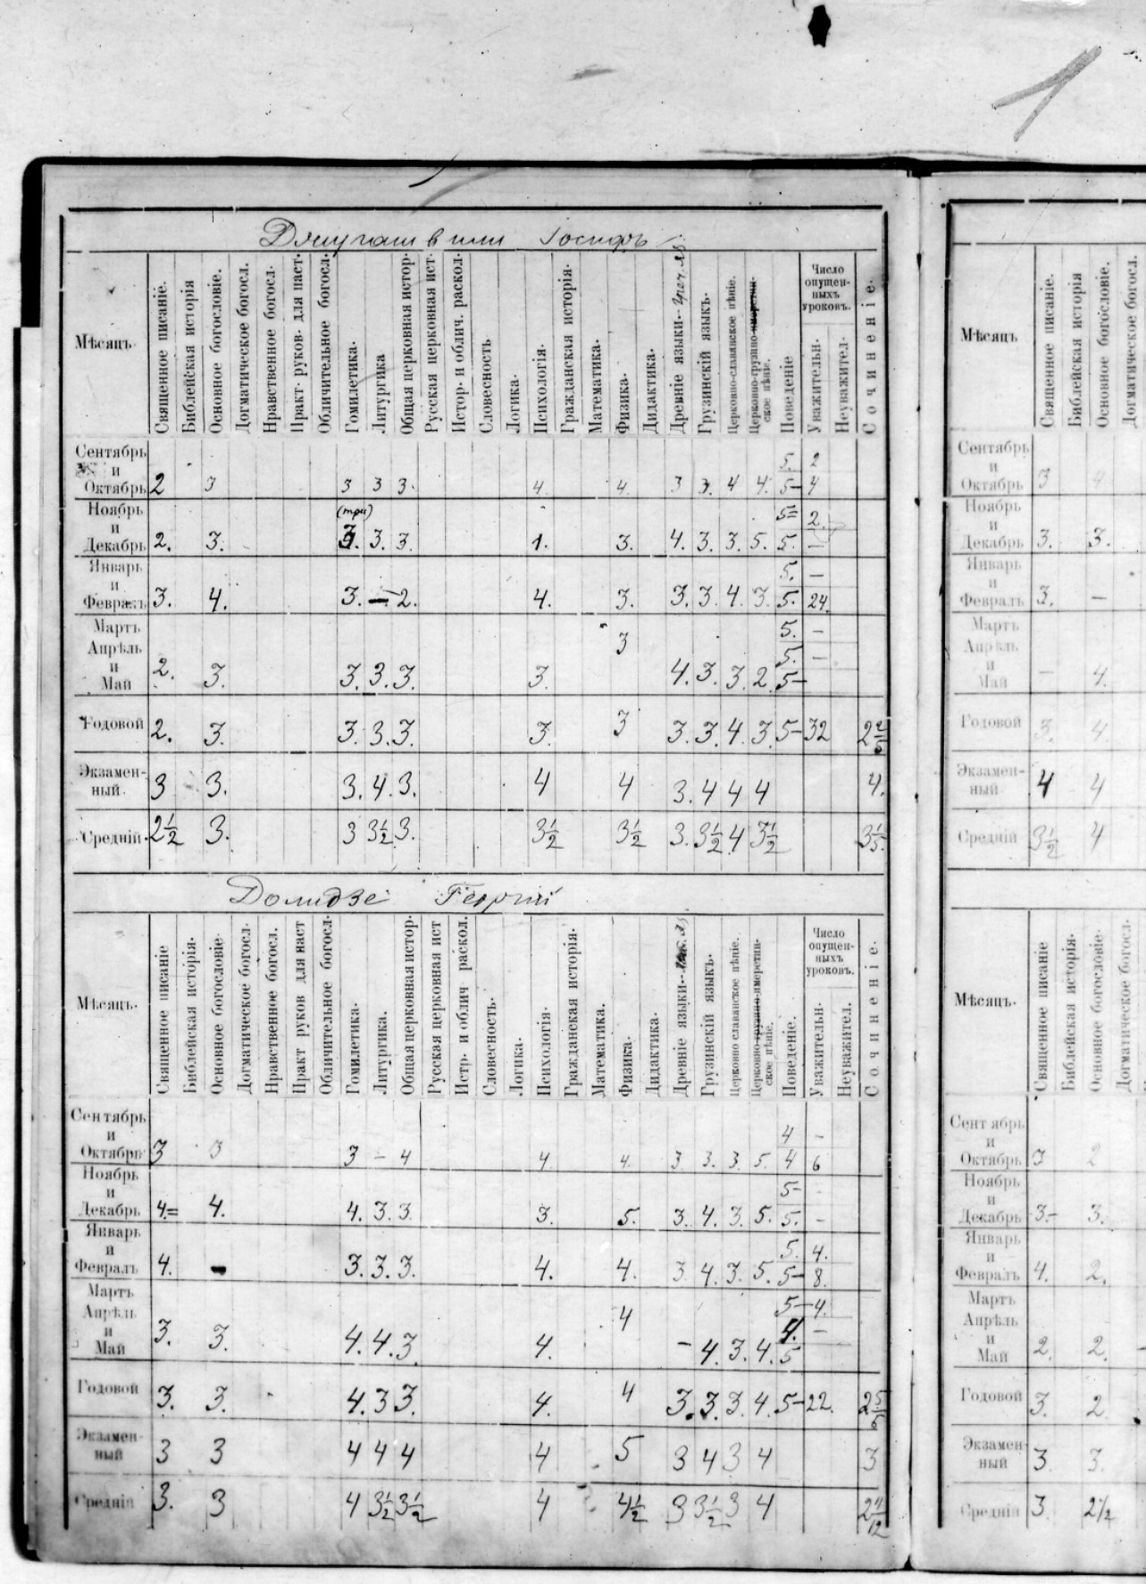 1
Джугашвили Іосифъ
Мѣсяцъ. Священное писаніе. Библейская исторія Основное богословіе. Догматическое богосл. Нравственное богосл. Практ. руков. для паст. Обличительное богосл. Гомилетика. Литургика Общая церковная истор. Русская церковная ист. Истор. и облич. раскол. Словесность Логика. Психологія. Гражданская исторія. Математика. Физика. Дидактика. Древніе языки. греч. яз Грузинскій языкъ. Церковно-славянское пѣніе. Церковно-грузино-имеретинское пѣніе. Поведеніе Число опущенныхъ уроковъ. Уважительн. Неуважител. Сочиненіе.
Сентябрь 5. 2
и
Октябрь 2 3 3 3 3. 4. 4. 3 3. 4 4. 5- 4
Ноябрь (три) 5= 2.
и
Декабрь 2. 3. 3. 3. 3. 1. 3. 4. 3. 3. 5. 5. —
Январь 5. —
и
Февраль 3. 4. 3. — 2. 4. 3. 3. 3. 4. 3. 5. 24.
Мартъ 3 5. —
Апрѣль 5. —
и
Май 2. 3. 3. 3. 3. 3. 4. 3. 3. 2. 5-
Годовой 2. 3. 3. 3. 3. 3. 3 3. 3. 4. 3. 5- 32
Экзаменный 3 3. 3. 4. 3. 4 4 3. 4 4 4 4.
Средній 2½ 3. 3 3½ 3. 3½ 3½ 3. 3½ 4 3½ 3⅕
Долидзе Георгій
Мѣсяцъ. Священное писаніе Библейская исторія. Основное богословіе. Догматическое богосл. Нравственное богосл. Практ руков для паст Обличительное богосл. Гомилетика. Литургика. Общая церковная истор. Русская церковная ист Истр. и облич раскол. Словесность. Логика. Психологія. Гражданская исторія. Математика. Физика. Дидактика. Древніе языки Грузинскій языкъ. Церковно славянское пѣніе. Церковно-грузино имеретинское пѣніе. Поведеніе. Число опущенныхъ уроковъ. Уважительн. Неуважител. Сочиненіе.
Сентябрь 4 -
и
Октябрь 3 3 3 - 4 4 4. 3 3. 3. 5. 4 6
Ноябрь 5-
и
Декабрь 4= 4. 4. 3. 3. 3. 5. 3. 4. 3. 5. 5. -
Январь 5. 4.
и
Февраль 4. - 3. 3. 3. 4. 4. 3. 4. 3. 5. 5- 8.
Мартъ 4 5- 4.
Апрѣль 4. —
и
Май 3. 3. 4. 4. 3. 4. - 4. 3. 4. 5
Годовой 3. 3. 4. 3 3. 4. 4 3. 3. 3. 4. 5- 22.
Экзаменный 3 3 4 4 4 4 5 3 4 3 4 3
Средній 3. 3 4 3½ 3½ 4 4½ 3 3½ 3 4
Мѣсяцъ Священное писаніе. Библейская исторія Основное богословіе. Догматическое богосл.
Сентябрь
и
Октябрь 3 4
Ноябрь
и
Декабрь 3. 3.
Январь
и
Февраль 3. -
Мартъ
Апрѣль
и
Май — 4.
Годовой 3. 4
Экзаменный 4 4
Средній 3½ 4
Мѣсяцъ. Священное писаніе Библейская исторія. Основное богословіе. Догматическое богосл
Сентябрь
и
Октябрь 3 2
Ноябрь
и
Декабрь 3.- 3.
Январь
и
Февраль 4. 2.
Мартъ
Апрѣль
и
Май 2. 2.
Годовой 3. 2.
Экзаменный 3. 3.
Средній 3. 2½